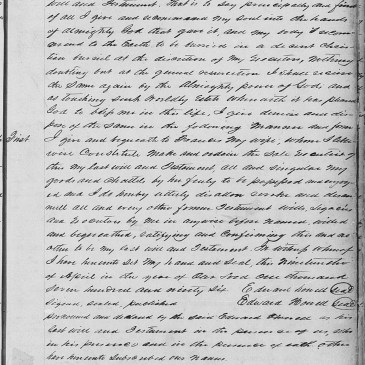 will and Testament. That is to say principally and first
of all I give and recommend my soul into the hands
of Almighty God that gave it, and my body I recom
mend to the Earth to be buried in a decent Chris
tian burial at the discretion of my Executors, nothing
doubting but at the general resurrection I shall receive
the same again by the Almighty power of God, and
as touching such Worldly Estate wherewith it has pleased
God to bless me in this life, I give demise and dis
pose of the same in the following Manner and form
First I give and bequeath to Frances my wife, whom I like
wise Constitute make and ordain the sole Executrix of
this my last will and Testament, all and singular my
goods and chattles by her freely to be possessed and enjoy
ed and I do hereby utterly disallow revoke and
null all and every other former Testament Wills, Legacies
and Executors by me in anywise before Named, willed
and bequeathed, ratifying and confirming this and no
other to be my last will and Testament In witness Whereof
I have hereunto set My hand and Seal, this
of April in the year of our Lord One thousand
seven hundred and ninety six Edward Howell Seal
Signed, sealed, published Edward Howell Seal
pronounced and declared by the said Edward Howell as his
last will and Testament in the presence of us, who
in his presence and in the presence of each other
have hereunto subscribed our Names.